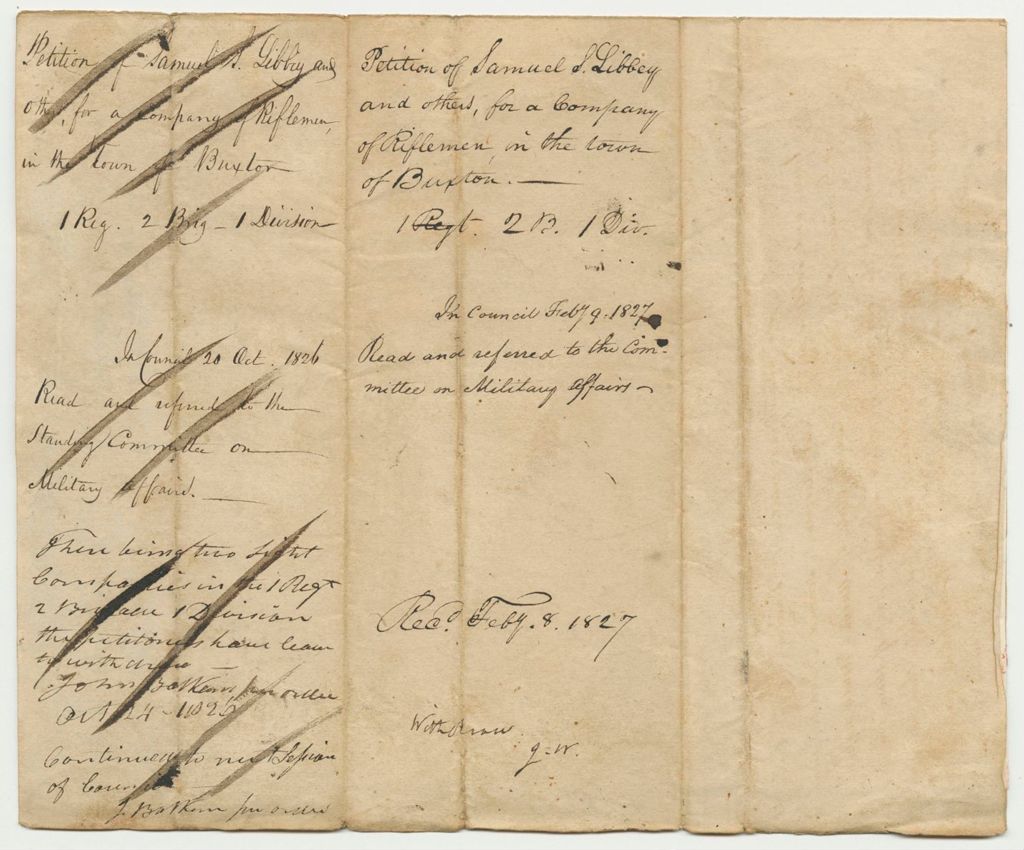 Petition of Samuel S. Libbey and
others, for a Company of Riflemen,
in the town of Buxton
1 Reg. 2 Brig - 1 Division
In Council 20 Oct. 1826
Read and referred to the
Standing Committee on
Military Affairs.
There being two Light
Companies in the 1 Regt
2 Brigade 1 Division
the petitioners have leave
to withdraw
John per order
Oct 24 - 1826
Continued to next Session
of Council
J. per order
Petition of Samuel S. Libbey
and others, for a Company
of Riflemen, in the town
of Buxton.
1 Regt. 2 B. 1 Div.
In Council Feby 9. 1827
Read and referred to the Com-
mittee on Military Affairs
Recd. Feby. 8. 1827
Withdraw
J. W.